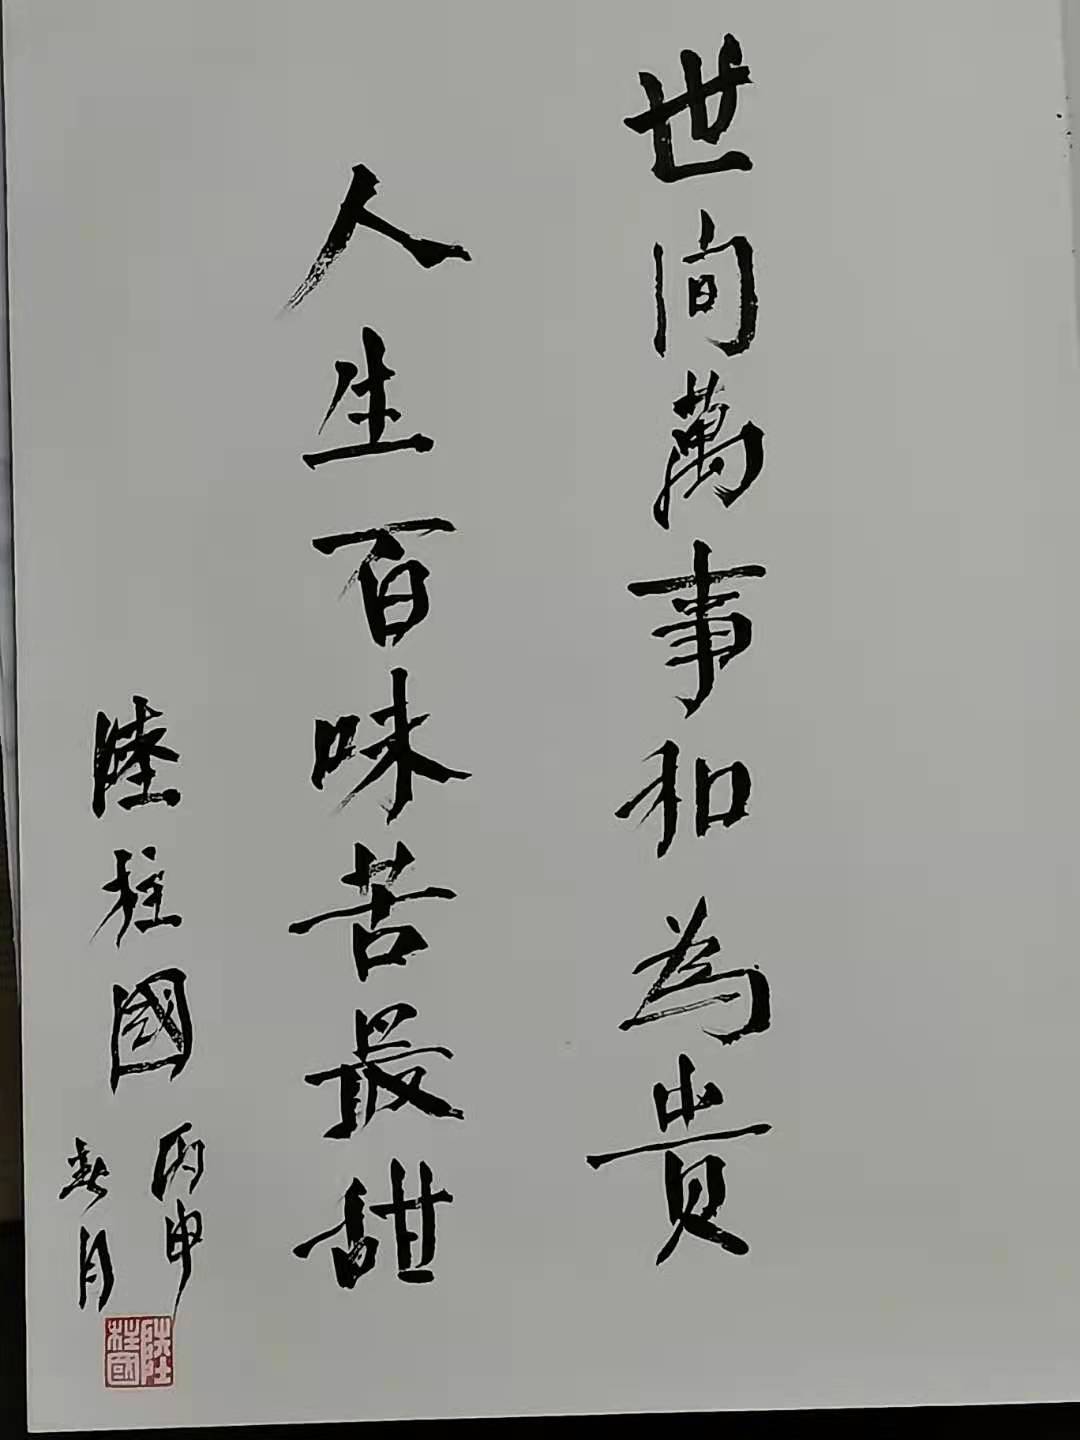 世间萬事和為貴
人生百味苦最甜
陸柱國
丙申
春月
陸柱國